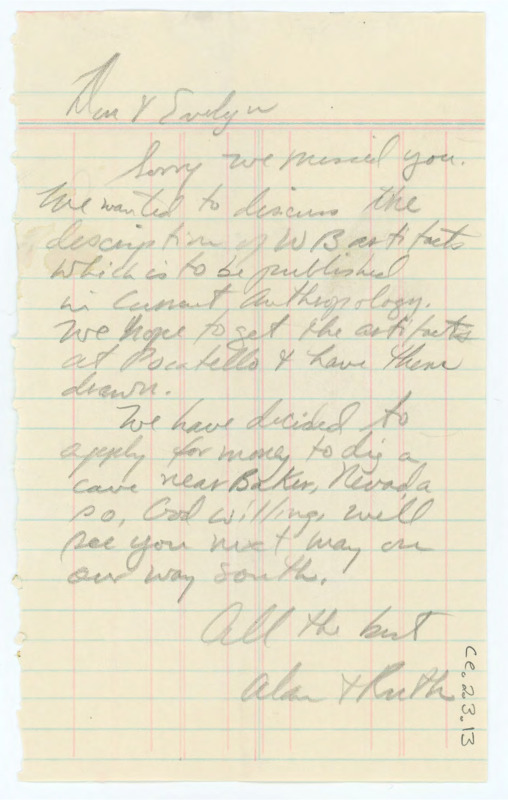 Don & Evelyn
Sorry we missed you.
We wanted to discuss the
description of WB artifacts
which is to be published
in Current Anthropology.
We hope to get the artifacts
at Pocatello & have them
drawn.
We have decided to
apply for money to dig a
cave near Baker, Nevada
so, God willing, will
see you next May on
our way south.
All the best
Alan & Ruth
Ce.23.13